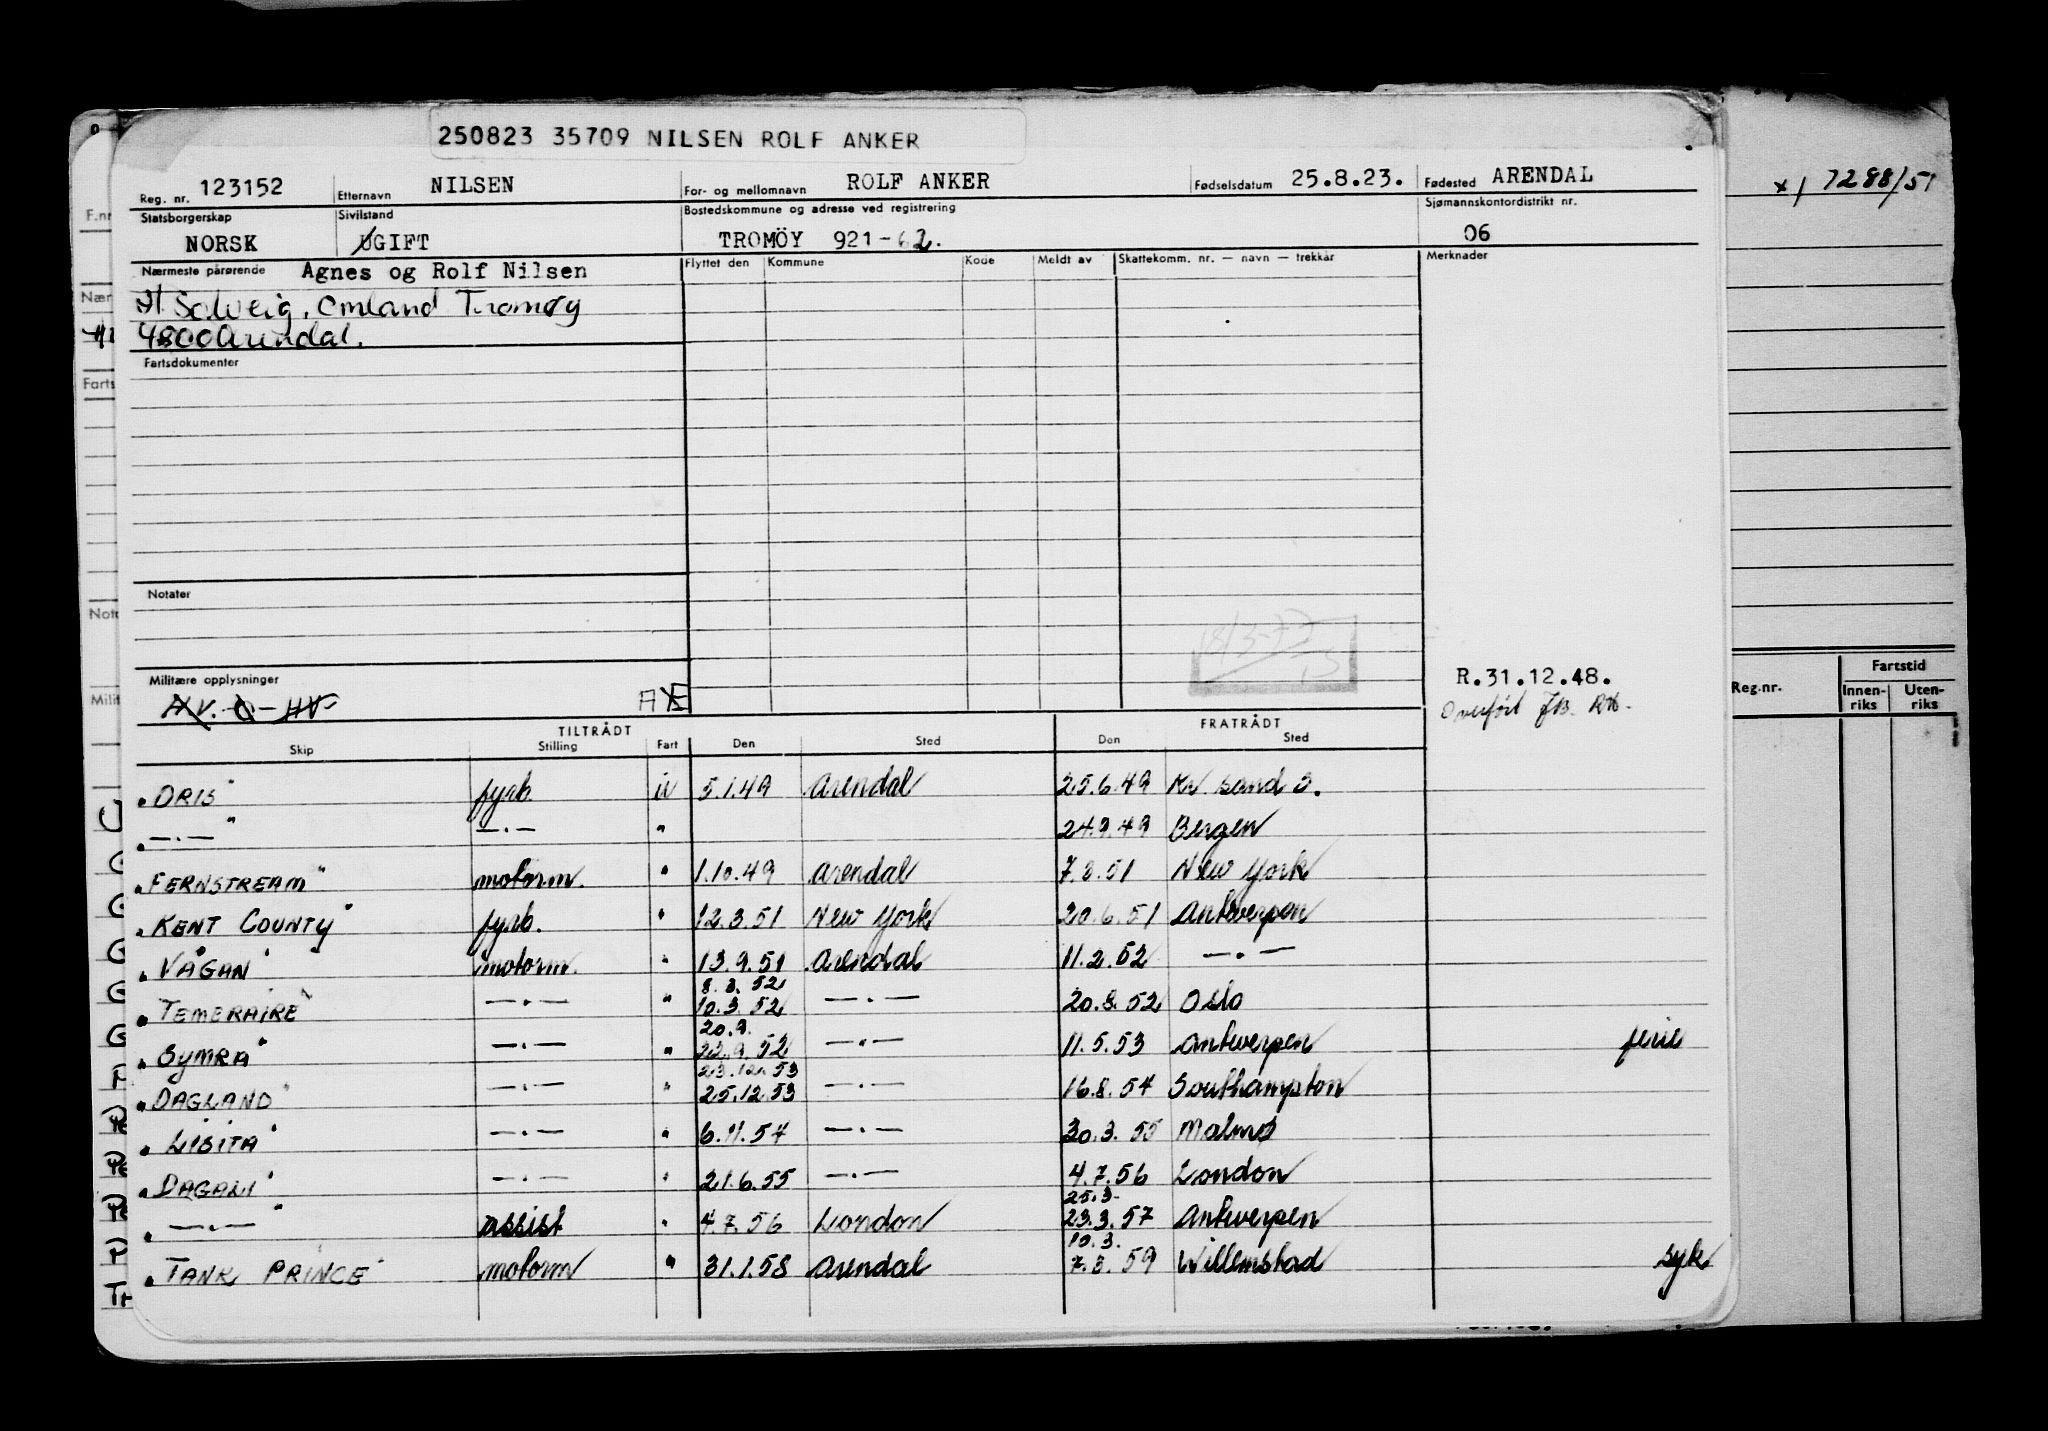 250823 35709 NILSEN ROLF ANKER
Reg. nr. 123152 Etternavn NILSEN For- og mellomnavn ROLF ANKER Fødselsdatum 25.8.23. Fødested ARENDAL
Statsborgerskap Sivilstand Bostedskommune og adresse ved registrering Sjømannskontordistrikt nr.
NORSK UGIFT TROMÖY 921-62. 06
Nærmeste pårørende Agnes og Rolf Nilsen Flyttet den Kommune Kode Meldt av Skattekomm. nr. — navn — trekkår Merknader
H. Solveig, Omland Tromøy
4800 Arendal.
Fartsdokumenter
Notater
Militære opplysninger
R.31.12.48.
Overført
TILTRÅDT FRATRÅDT
Skip Stilling Fart Den Sted Den Sted
"ORIS" fyrb. u 5.1.49 Arendal 25.6.49 Kr. sand S.
"—.—" —.— " 24.9.49 Bergen
"FERNSTREAM" motorm. " 1.10.49 Arendal 7.3.51 New York
"KENT COUNTY" fyrb. " 12.3.51 New York 20.6.51 Antwerpen
"VÅGAN" motorm. " 13.9.51 Arendal 11.2.52 —.—
8.3.52
"TEMERAIRE" —.— " 10.3.52 —.— 20.8.52 Oslo
20.9.
"SYMRA" —.— " 22.9.52 —.— 11.5.53 Antwerpen ferie
23.12.53
"DAGLAND" —.— " 25.12.53 —.— 16.8.54 Southampton
"LISITA" —.— " 6.11.54 —.— 30.3.55 Malmø
"DAGALI" —.— " 21.6.55 —.— 4.7.56 London
25.3.
"—.—" assist " 4.7.56 London 23.3.57 Antwerpen
10.3.
"TANK PRINCE" motorm " 31.1.58 Arendal 7.3.59 Willemstad syk
x) 7288/51
Reg.nr. Fartstid
Innen-riks Uten-riks